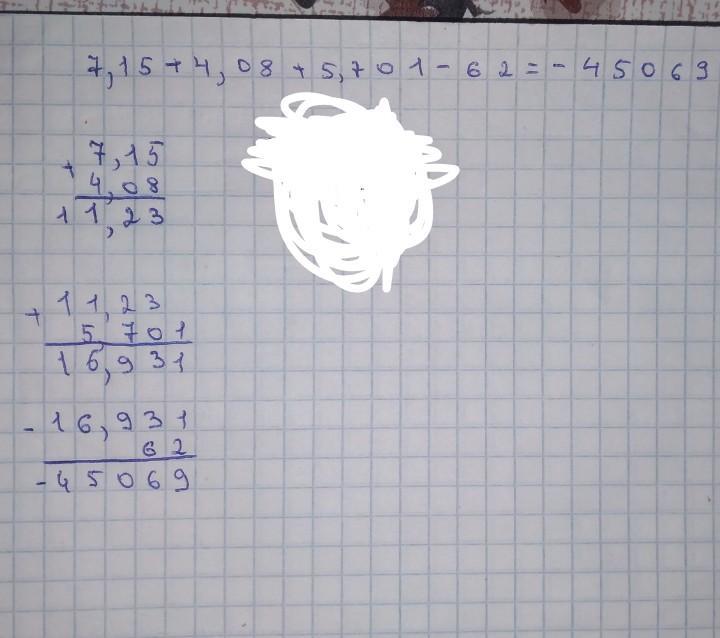 7,15+4,08+5,701-62=-45069
+ 7,15
4,08
11,23
+ 11,23
5,701
16,931
- 16,931
62
-45069